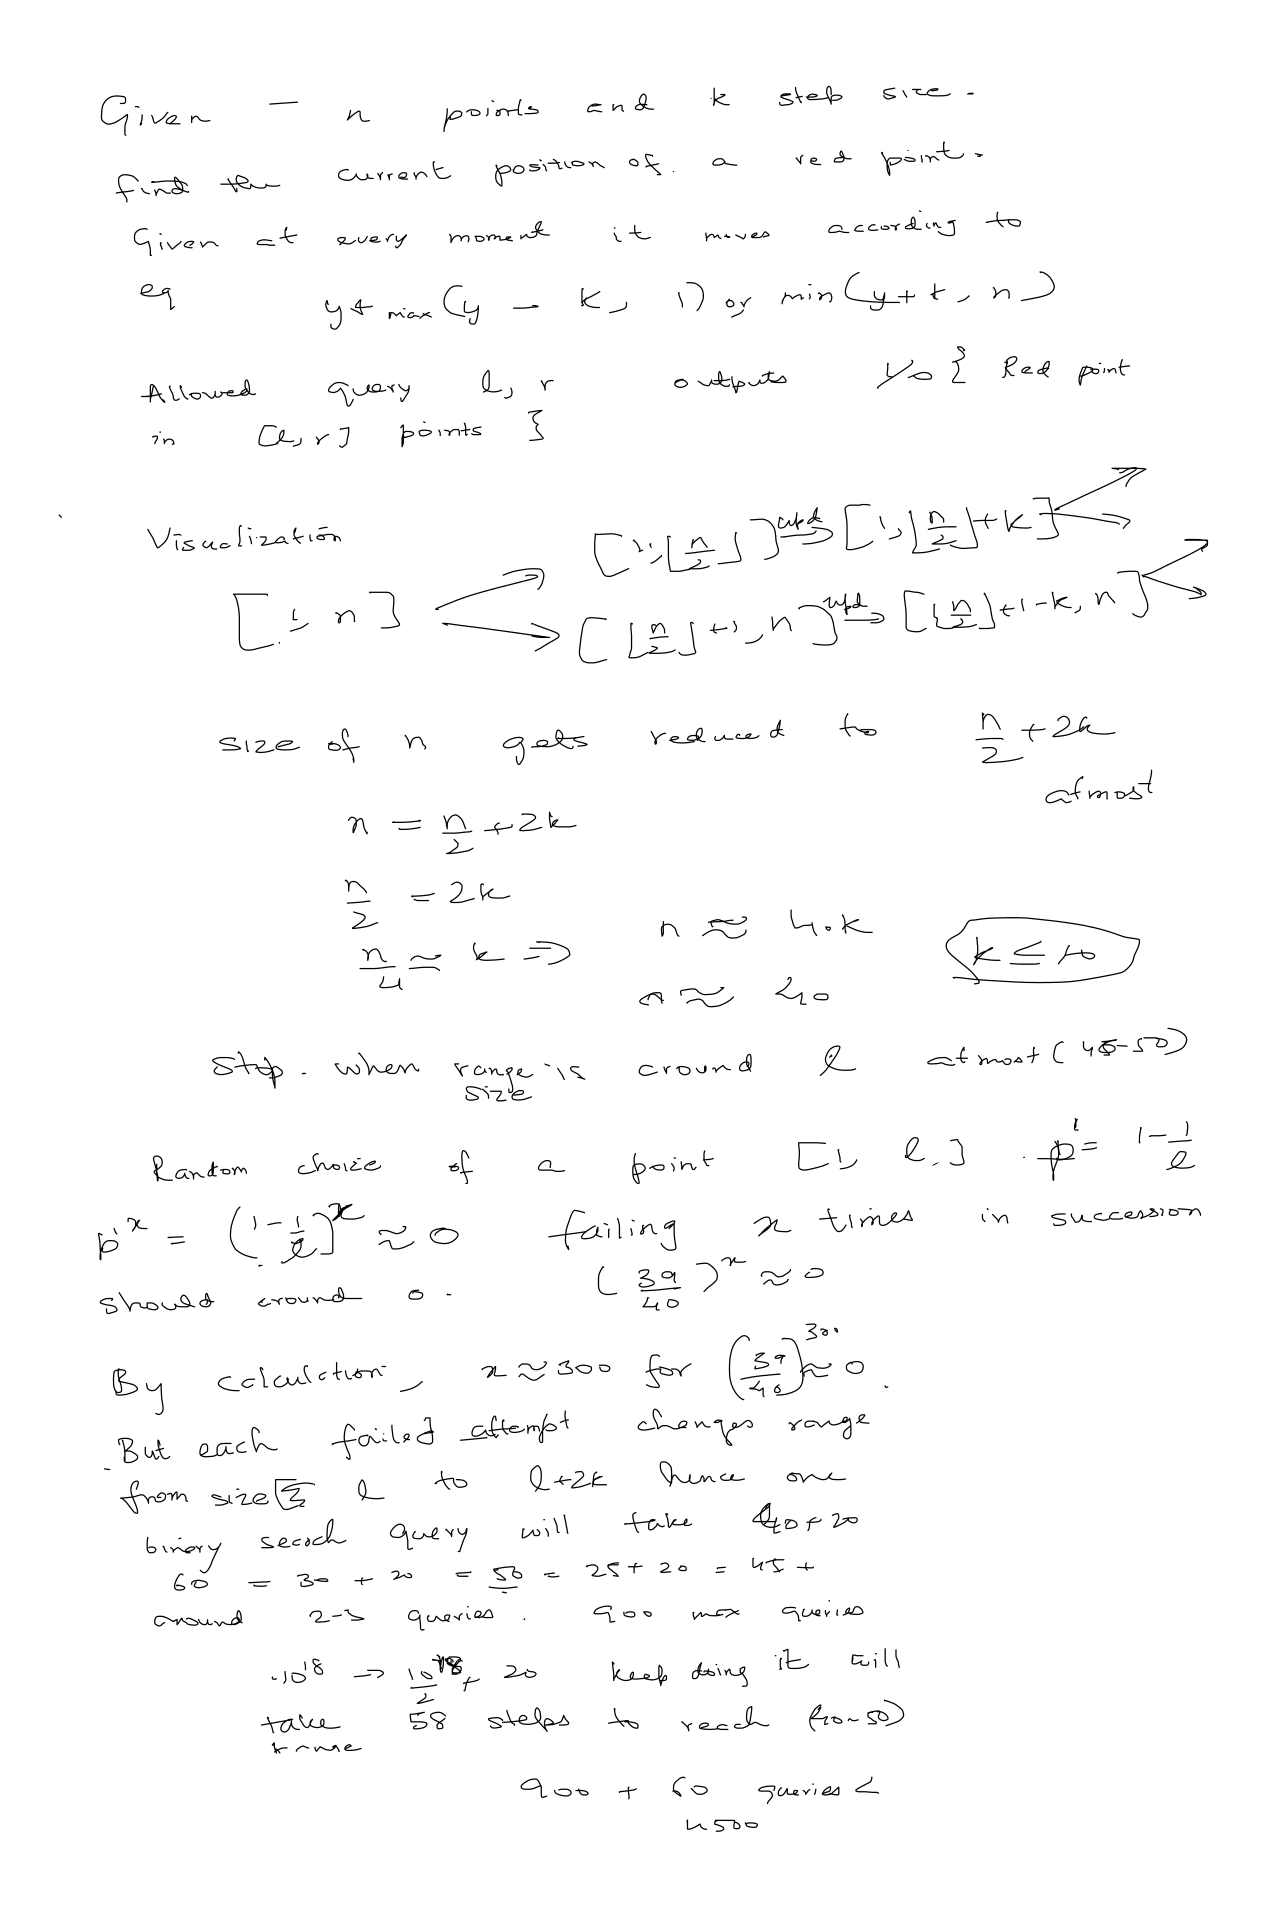 Given - n points and k step size.
find the current position of a red point.
Given at every moment it moves according to
eq y ← max(y - k, 1) or min(y + k, n)
Allowed query l, r outputs 1/0 { Red point
in [l, r] points }
Visualization
[1, n]
[1, ⌊n/2⌋] upd → [1, ⌊n/2⌋+k]
[⌊n/2⌋+1, n] upd → [⌊n/2⌋+1-k, n]
size of n gets reduced to n/2 + 2k
atmost
n = n/2 + 2k
n/2 = 2k
n/4 ≈ k ⇒ n ≈ 4·k
k ≤ 10
n ≈ 40
Stop. when range size is around l atmost (45-50)
Random choice of a point [1, l.] . p' = 1 - 1/l
p'^x = (1 - 1/l)^x ≈ 0 failing x times in succession
should around 0. (39/40)^x ≈ 0
By calculation, x ≈ 300 for (39/40)^300 ≈ 0.
But each failed attempt changes range
from size l to l+2k hence one
binary search query will take 40 + 20
60 = 30 + 20 = 50 = 25 + 20 = 45 +
around 2-3 queries. 900 max queries
10^18 → 10^18/2 + 20 keep doing it will
take 58 steps to reach (40-50)
range
900 + 60 queries <
4500